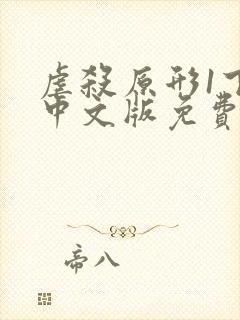 虐殺原形1下
中文版免費
帝八